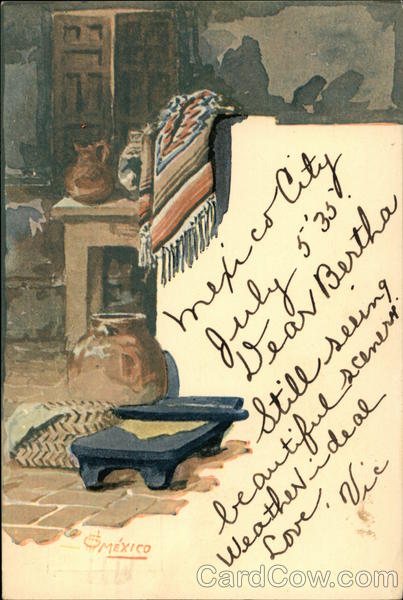 Mexico City
July 5'35'
Dear Bertha
Still seeing
beautiful scenery.
Weather ideal
Love, Vic
MÉXICO
CardCow.com